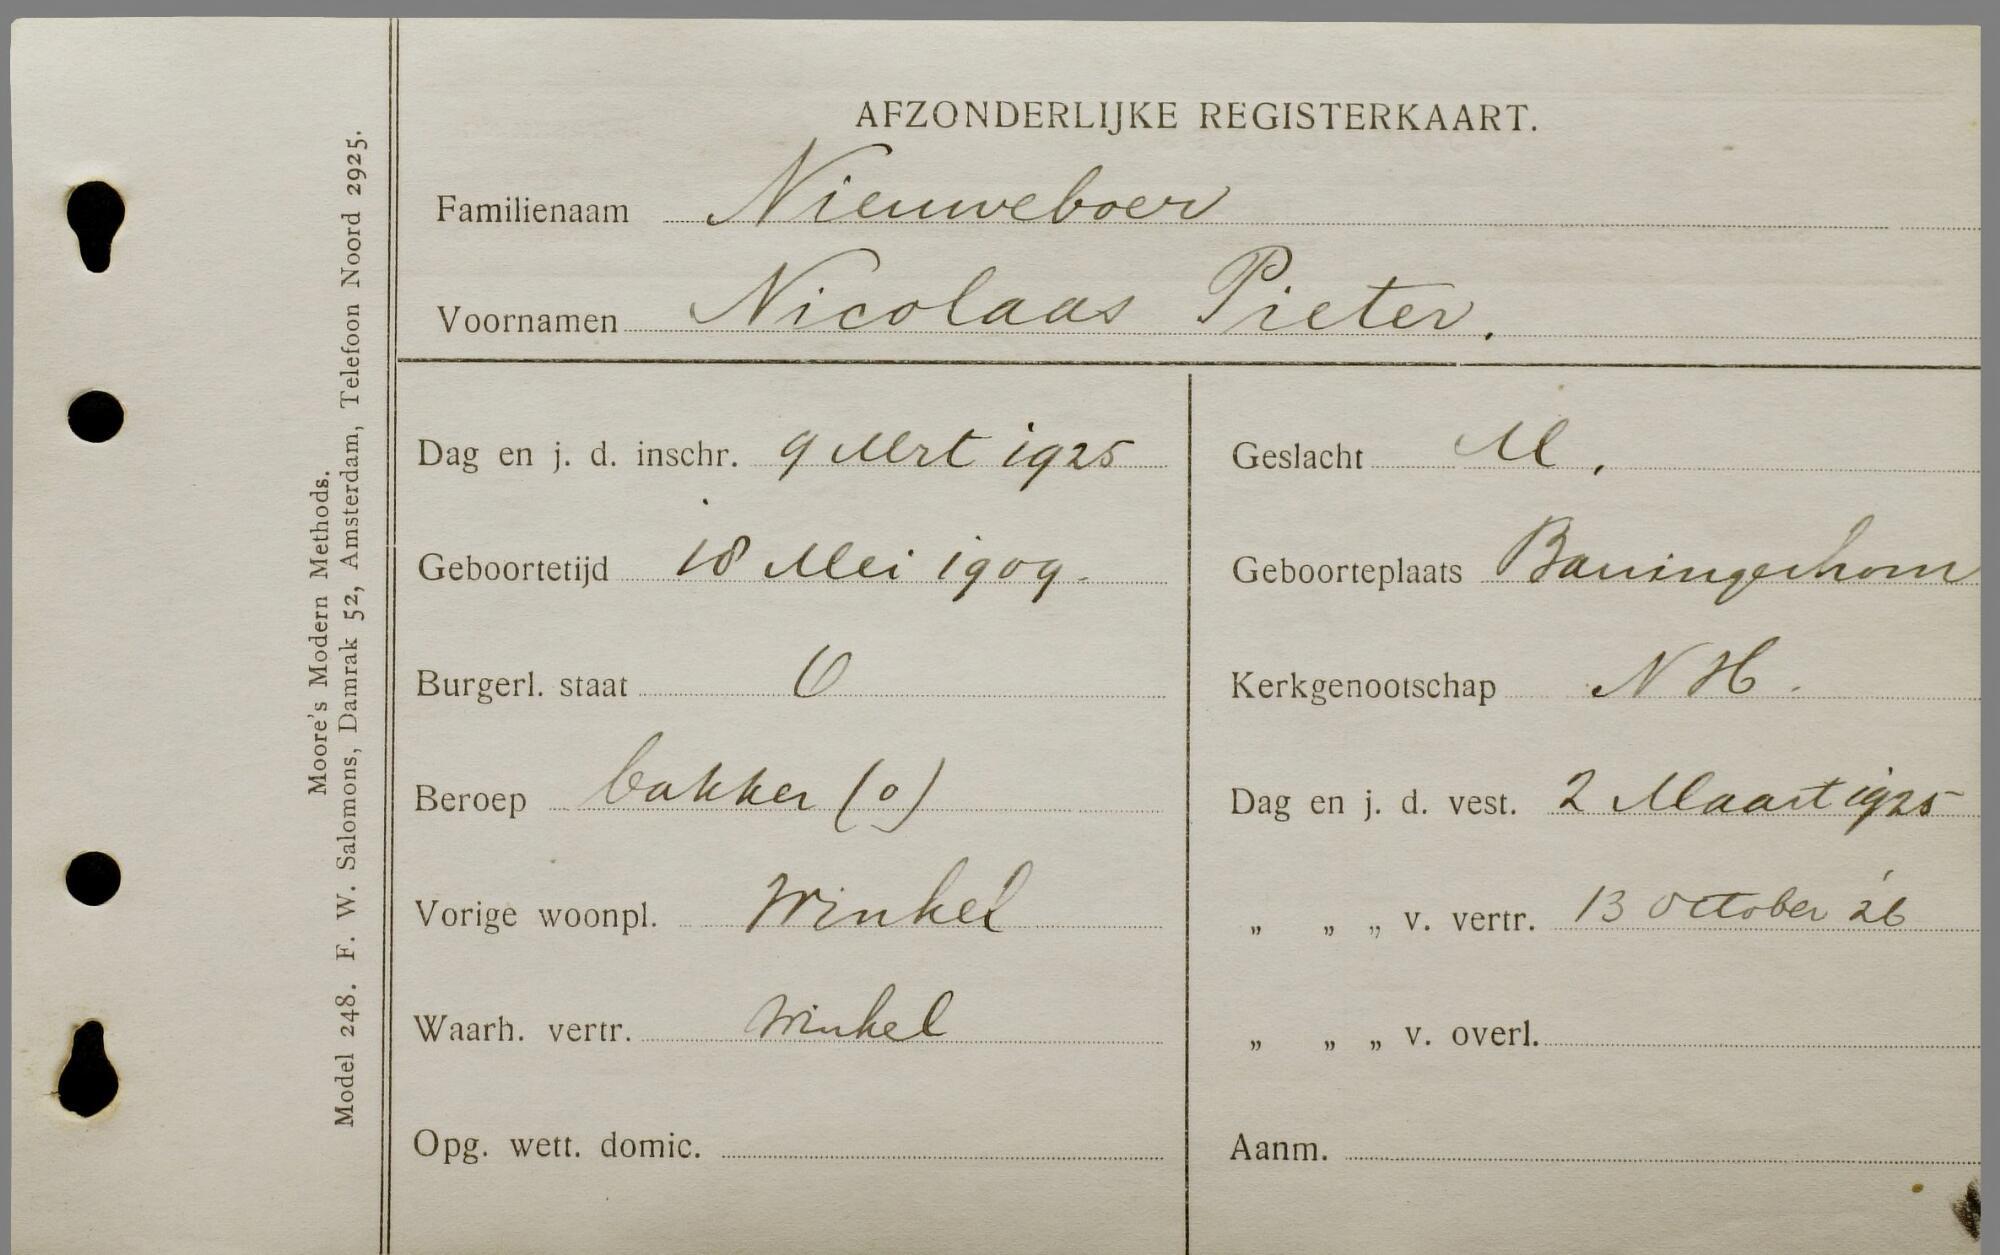 AFZONDERLIJKE REGISTERKAART.
Familienaam Nieuweboer
Voornamen Nicolaas Pieter.
Dag en j. d. inschr. 9 Mrt 1925
Geslacht M.
Geboortetijd 18 Mei 1909.
Geboorteplaats Barsingerhorn
Burgerl. staat O
Kerkgenootschap N H.
Beroep bakker (o)
Dag en j. d. vest. 2 Maart 1925
Vorige woonpl. Winkel
„ „ „ v. vertr. 13 October '26
Waarh. vertr. Winkel
„ „ „ v. overl.
Opg. wett. domic.
Aanm.
Moore's Modern Methods.
Model 248. F. W. Salomons, Damrak 52, Amsterdam, Telefoon Noord 2925.